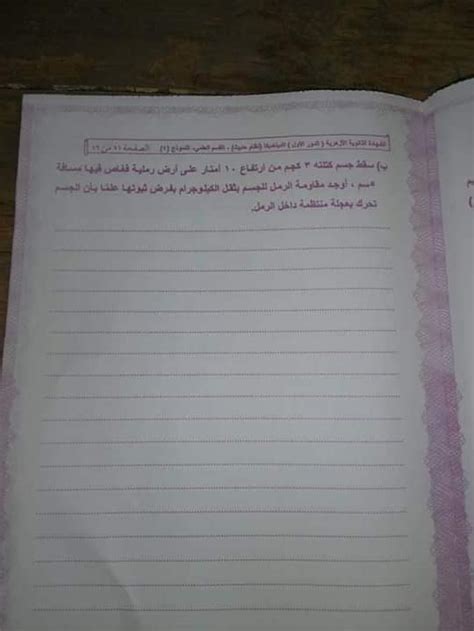 الشهادة الثانوية الأزهرية ( الدور الأول ) الديناميكا (نظام حديث) - القسم العلمي، النموذج (٢) الصفحة ١١ من ١٦
ب) سقط جسم كتلته ٣ كجم من ارتفاع ١٠ أمتار على أرض رملية فغاص فيها مسافة
سم ، أوجد مقاومة الرمل للجسم بثقل الكيلوجرام بفرض ثبوتها علمًا بأن الجسم
تحرك بعجلة منتظمة داخل الرمل.